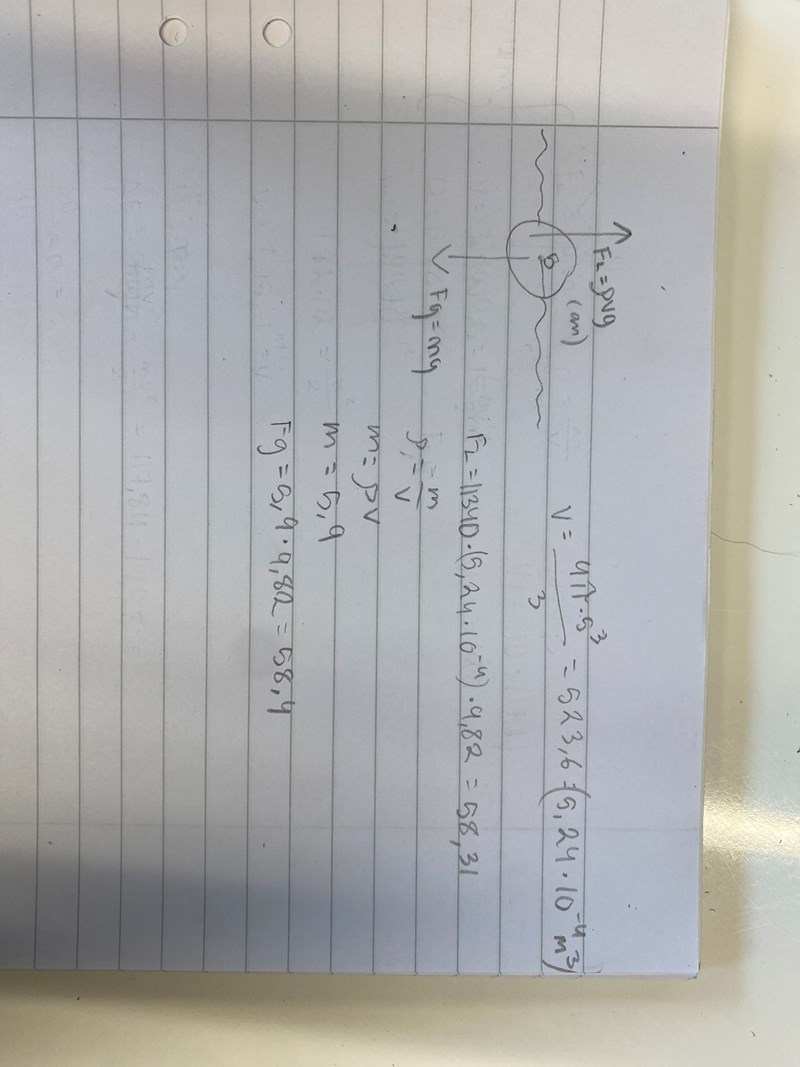 FL = ρVg
(cm)
5
Fg = mg
V = 4π·5³/3 = 523,6 = (5,24·10⁻⁴ m³)
FL = 11340·(5,24·10⁻⁴)·9,82 = 58,31
ρ = m/V
m = ρV
m = 5,9
Fg = 5,9·9,82 = 58,4